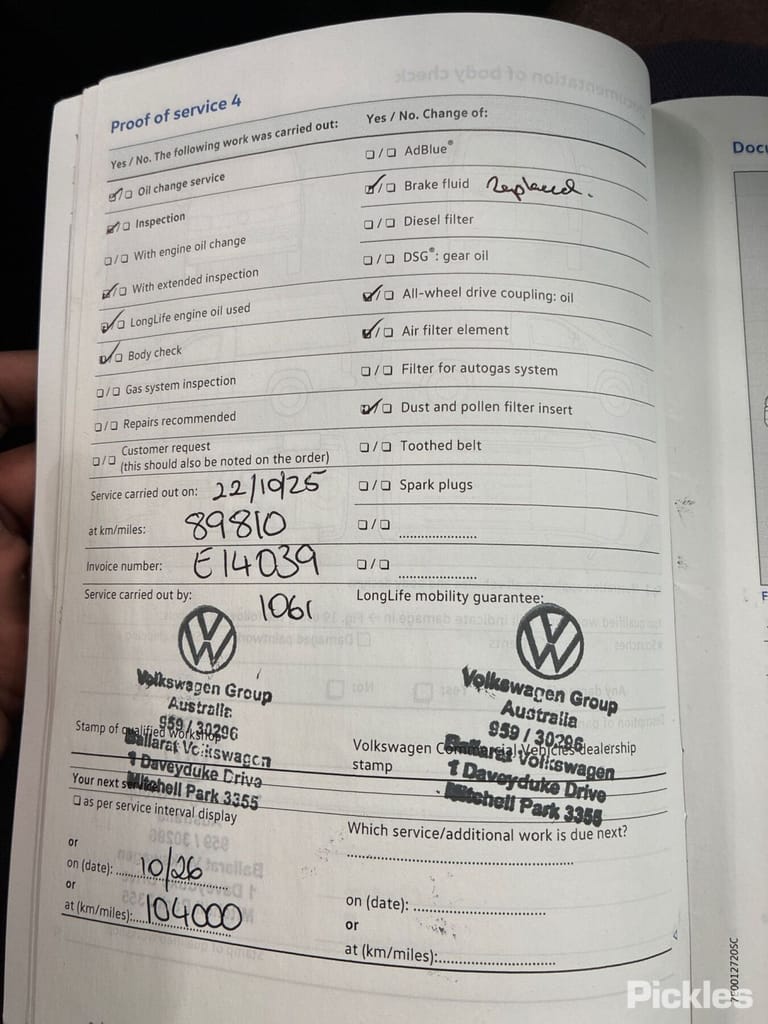 Proof of service 4
Yes / No. The following work was carried out:
☑/☐ Oil change service
☑/☐ Inspection
☐/☐ With engine oil change
☑/☐ With extended inspection
☑/☐ LongLife engine oil used
☑/☐ Body check
☐/☐ Gas system inspection
☐/☐ Repairs recommended
☐/☐ Customer request
(this should also be noted on the order)
Service carried out on: 22/10/25
at km/miles: 89810
Invoice number: E14039
Service carried out by: 1061
Volkswagen Group
Australia
959 / 30296
Stamp of qualified workshop
Ballarat Volkswagen
1 Daveyduke Drive
Mitchell Park 3355
Your next service
☐ as per service interval display
or
on (date): 10/26
or
at (km/miles): 104000
Yes / No. Change of:
☐/☐ AdBlue®
☑/☐ Brake fluid Replaced.
☐/☐ Diesel filter
☐/☐ DSG®: gear oil
☑/☐ All-wheel drive coupling: oil
☑/☐ Air filter element
☐/☐ Filter for autogas system
☑/☐ Dust and pollen filter insert
☐/☐ Toothed belt
☐/☐ Spark plugs
☐/☐ ....................
☐/☐ ....................
LongLife mobility guarantee:
Volkswagen Group
Australia
959 / 30296
Volkswagen Commercial Vehicles dealership
stamp
Ballarat Volkswagen
1 Daveyduke Drive
Mitchell Park 3355
Which service/additional work is due next?
on (date):
or
at (km/miles):
Docu
7E0012720SC
Pickles